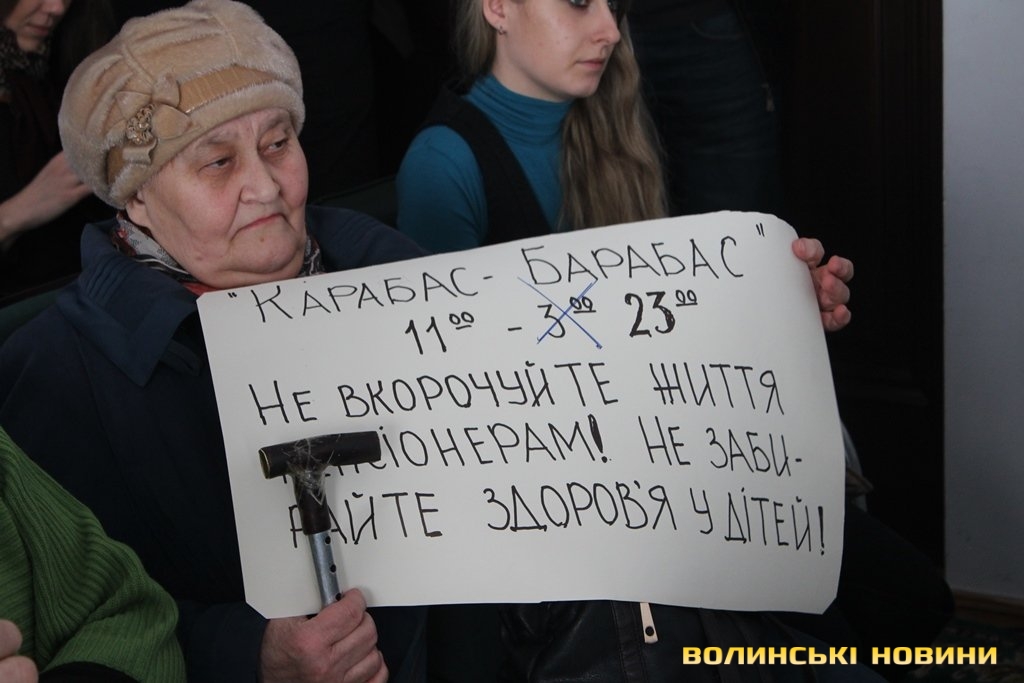 "КАРАБАС-БАРАБАС"
11⁰⁰ - 3⁰⁰ 23⁰⁰
НЕ ВКОРОЧУЙТЕ ЖИТТЯ
ІОНЕРАМ! НЕ ЗАБИ-
РАЙТЕ ЗДОРОВ'Я У ДІТЕЙ!
ВОЛИНСЬКІ НОВИНИ